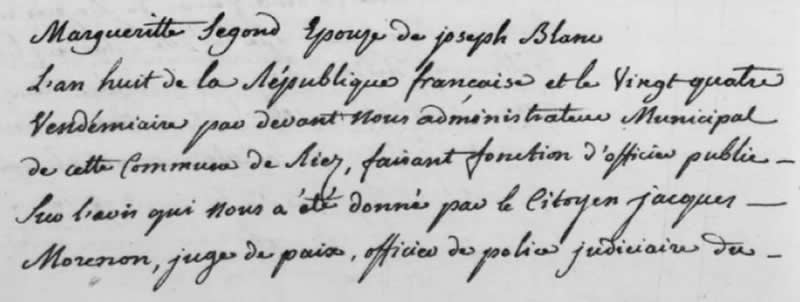 Margueritte Segond Epouse de joseph Blanc
L'an huit de la République française et le Vingt quatre
Vendémiaire par devant nous administrateur Municipal
de cette Commune de Riez, faisant fonction d'officier public –
Sur l'avis qui nous a été donné par le Citoyen jacques –
Morenon, juge de paix, officier de police judiciaire du –